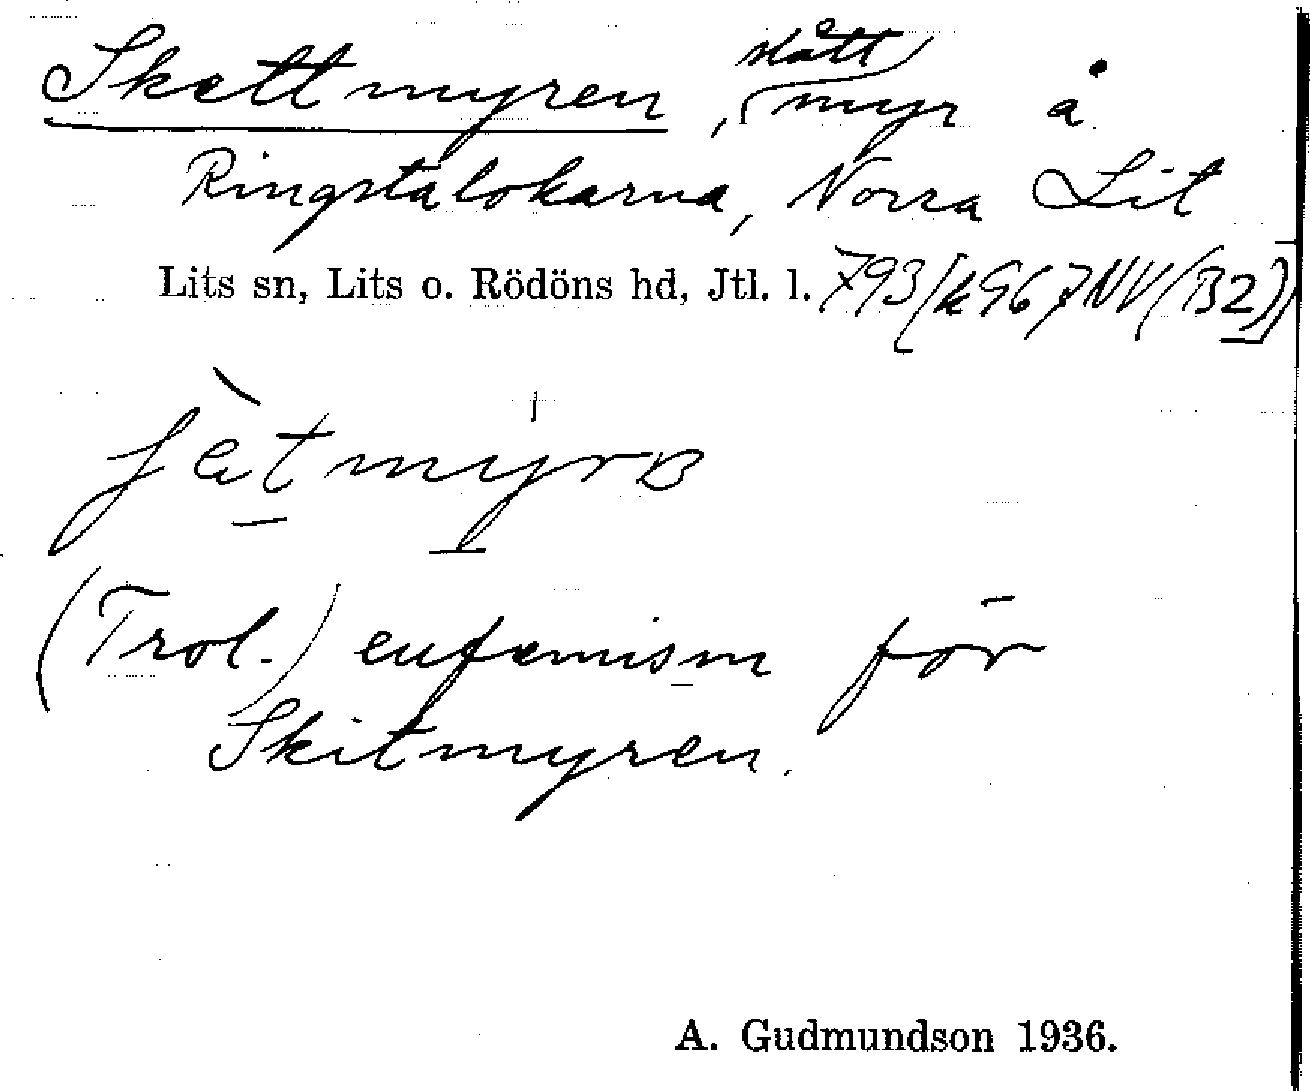 Skettmyren, slåttmyr å
Ringstalokarna, Norra Lit
Lits sn, Lits o. Rödöns hd, Jtl. l. 793/k967NV(B2)
(Trol.) eufemism för
Skitmyren.
A. Gudmundson 1936.